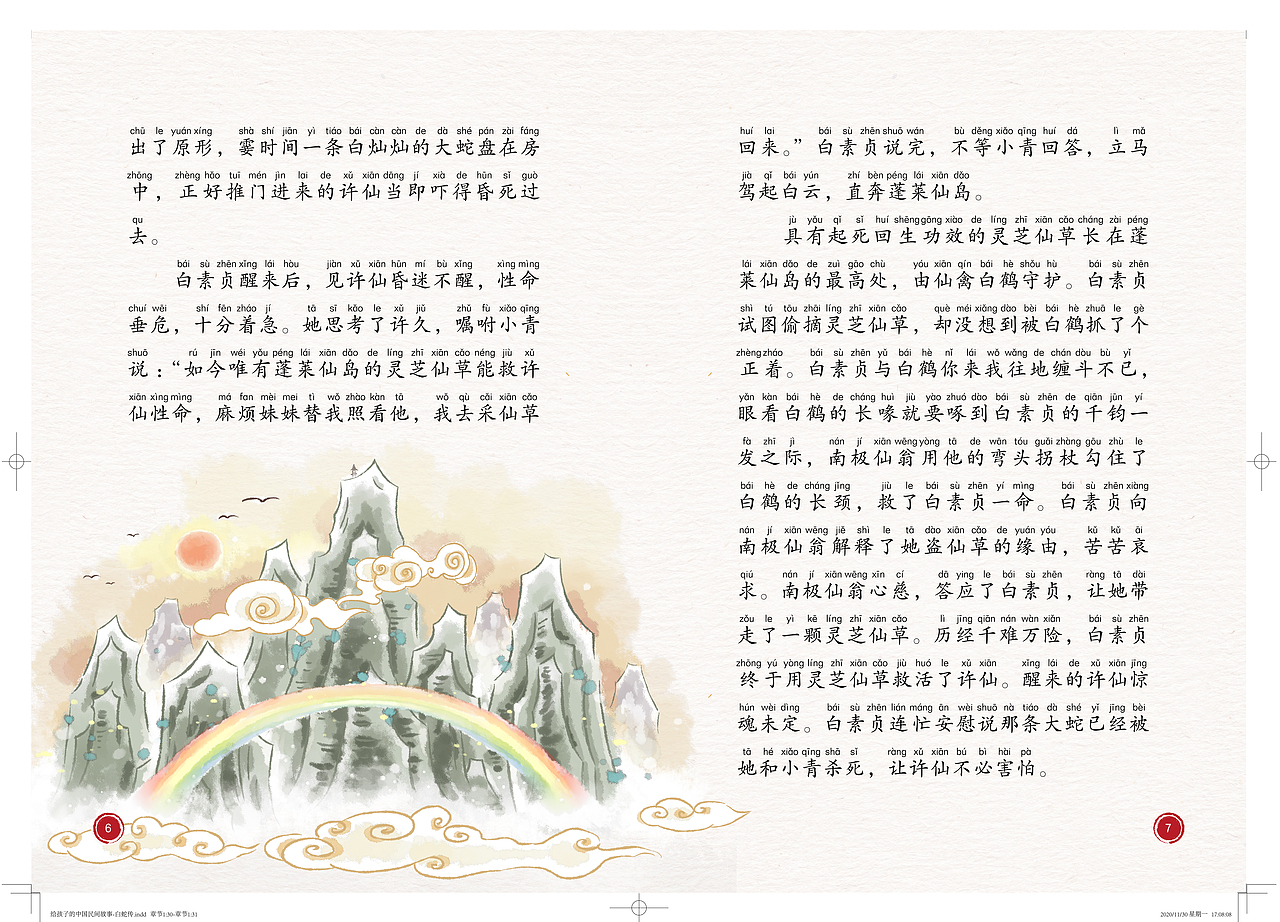 chū le yuán xíng shà shí jiān yì tiáo bái càn càn de dà shé pán zài fáng
出了原形，霎时间一条白灿灿的大蛇盘在房
zhōng zhèng hǎo tuī mén jìn lai de xǔ xiān dāng jí xià de hūn sǐ guò
中，正好推门进来的许仙当即吓得昏死过
qu
去。
bái sù zhēn xǐng lái hòu jiàn xǔ xiān hūn mí bù xǐng xìng mìng
白素贞醒来后，见许仙昏迷不醒，性命
chuí wēi shí fēn zháo jí tā sī kǎo le xǔ jiǔ zhǔ fù xiǎo qīng
垂危，十分着急。她思考了许久，嘱咐小青
shuō rú jīn wéi yǒu péng lái xiān dǎo de líng zhī xiān cǎo néng jiù xǔ
说：“如今唯有蓬莱仙岛的灵芝仙草能救许
xiān xìng mìng má fan mèi mei tì wǒ zhào kàn tā wǒ qù cǎi xiān cǎo
仙性命，麻烦妹妹替我照看他，我去采仙草
huí lai bái sù zhēn shuō wán bù děng xiǎo qīng huí dá lì mǎ
回来。”白素贞说完，不等小青回答，立马
jià qǐ bái yún zhí bèn péng lái xiān dǎo
驾起白云，直奔蓬莱仙岛。
jù yǒu qǐ sǐ huí shēng gōng xiào de líng zhī xiān cǎo cháng zài péng
具有起死回生功效的灵芝仙草长在蓬
lái xiān dǎo de zuì gāo chù yóu xiān qín bái hè shǒu hù bái sù zhēn
莱仙岛的最高处，由仙禽白鹤守护。白素贞
shì tú tōu zhāi líng zhī xiān cǎo què méi xiǎng dào bèi bái hè zhuā le gè
试图偷摘灵芝仙草，却没想到被白鹤抓了个
zhèng zháo bái sù zhēn yǔ bái hè nǐ lái wǒ wǎng de chán dòu bù yǐ
正着。白素贞与白鹤你来我往地缠斗不已，
yǎn kàn bái hè de cháng huì jiù yào zhuó dào bái sù zhēn de qiān jūn yí
眼看白鹤的长喙就要啄到白素贞的千钧一
fà zhī jì nán jí xiān wēng yòng tā de wān tóu guǎi zhàng gōu zhù le
发之际，南极仙翁用他的弯头拐杖勾住了
bái hè de cháng jǐng jiù le bái sù zhēn yí mìng bái sù zhēn xiàng
白鹤的长颈，救了白素贞一命。白素贞向
nán jí xiān wēng jiě shì le tā dào xiān cǎo de yuán yóu kǔ kǔ āi
南极仙翁解释了她盗仙草的缘由，苦苦哀
qiú nán jí xiān wēng xīn cí dā ying le bái sù zhēn ràng tā dài
求。南极仙翁心慈，答应了白素贞，让她带
zǒu le yì kē líng zhī xiān cǎo lì jīng qiān nán wàn xiǎn bái sù zhēn
走了一颗灵芝仙草。历经千难万险，白素贞
zhōng yú yòng líng zhī xiān cǎo jiù huó le xǔ xiān xǐng lái de xǔ xiān jīng
终于用灵芝仙草救活了许仙。醒来的许仙惊
hún wèi dìng bái sù zhēn lián máng ān wèi shuō nà tiáo dà shé yǐ jīng bèi
魂未定。白素贞连忙安慰说那条大蛇已经被
tā hé xiǎo qīng shā sǐ ràng xǔ xiān bú bì hài pà
她和小青杀死，让许仙不必害怕。
6
7
给孩子的中国民间故事-白蛇传.indd 章节1:30-章节1:31
2020/11/30 星期一 17:08:08